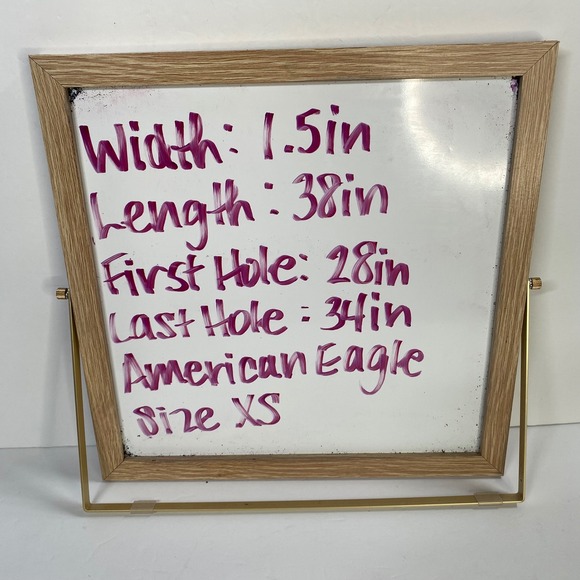 Width: 1.5in
Length: 38in
First Hole: 28in
Last Hole: 34in
American Eagle
Size XS